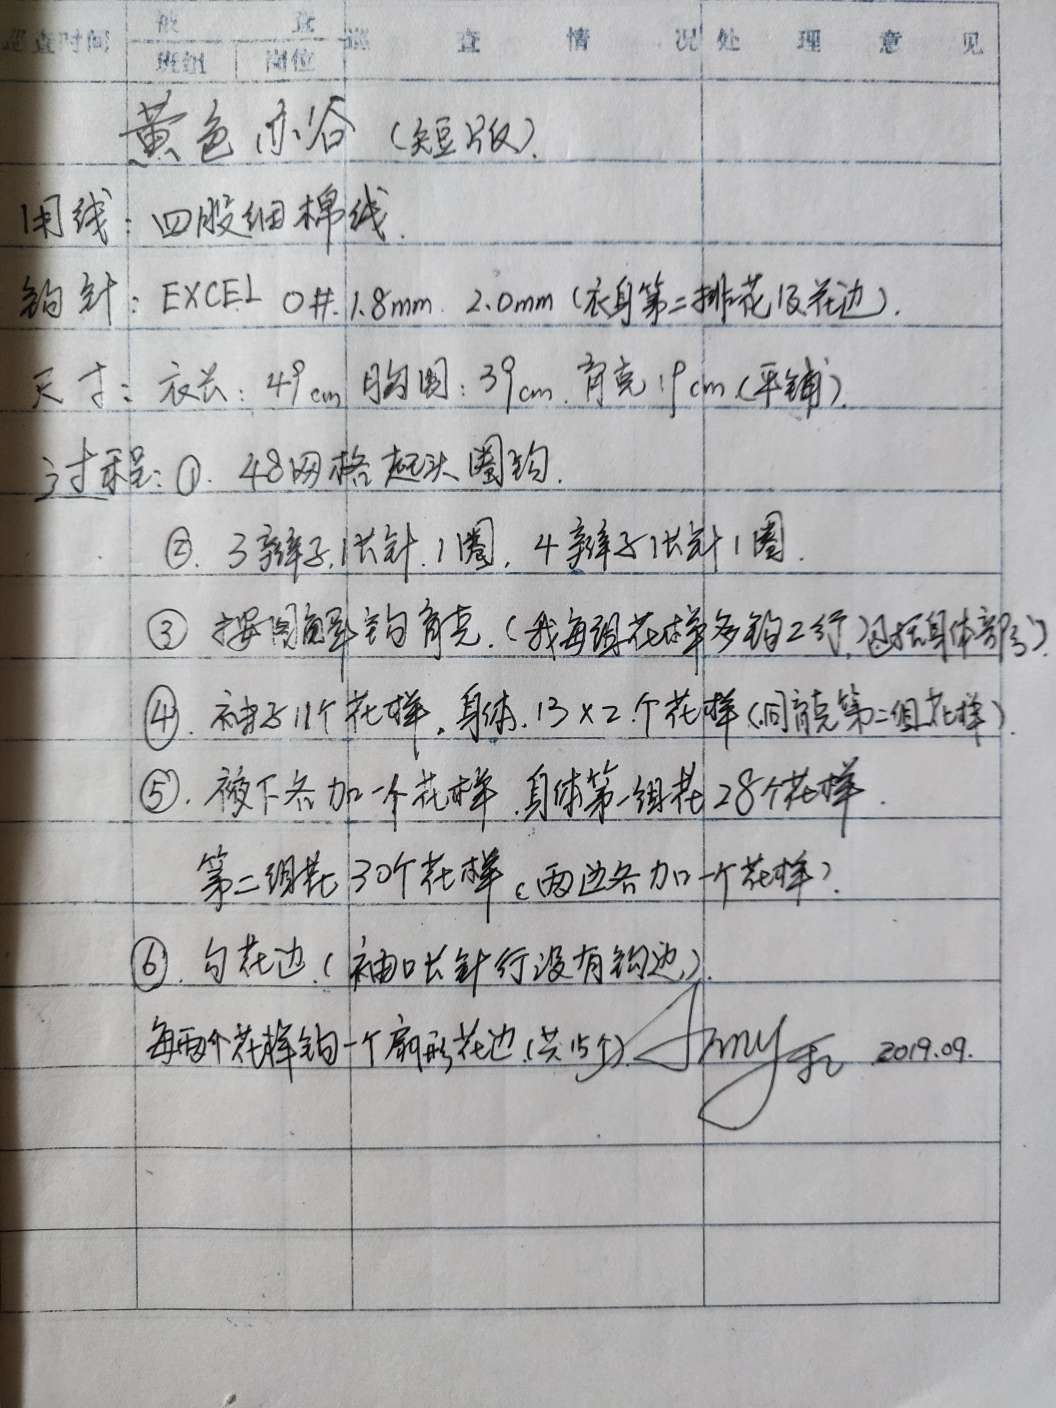 巡查时间 被查 巡查情况 处理意见
班组 岗位
黄色亦谷(短版).
用线:四股细棉线.
钩针:EXCEL 0#.1.8mm. 2.0mm(衣身第二排花及花边).
尺寸:衣长:49cm 胸围:39cm.育克19cm(平铺).
过程:①.48网格起头圈钩.
②.3辫子1长针.1圈,4辫子1长针1圈.
③按图解钩育克.(我每组花样多钩2行,包括身体部分).
④.袖子11个花样,身体.13×2.个花样(同育克第二组花样).
⑤.腋下各加一个花样.身体第一组花28个花样.
第二组花30个花样(两边各加一个花样).
⑥.勾花边(袖口长针行没有钩边).
每两个花样钩一个扇形花边(共15个) Amy 2019.09.